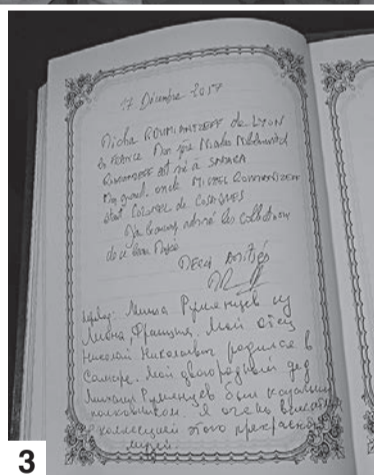 17 Décembre 2017
Micha ROUMIANTZEFF de LYON
en FRANCE Mon père Nicolas
ROUMIANTZEFF est né à SAMARA
Mon grand oncle MICHEL ROUMIANTZEFF
était COLONEL de COSAQUES
J'ai beaucoup admiré les collections
de ce beau Musée
MERCI Amitiés
Перевод: Миша Румянцев из
Лиона, Франция. Мой отец
Николай Николаевич родился в
Самаре. Мой двоюродный дед
Михаил Румянцев был казачьим
полковником. Я очень
коллекцией этого прекрасного
музея.
3